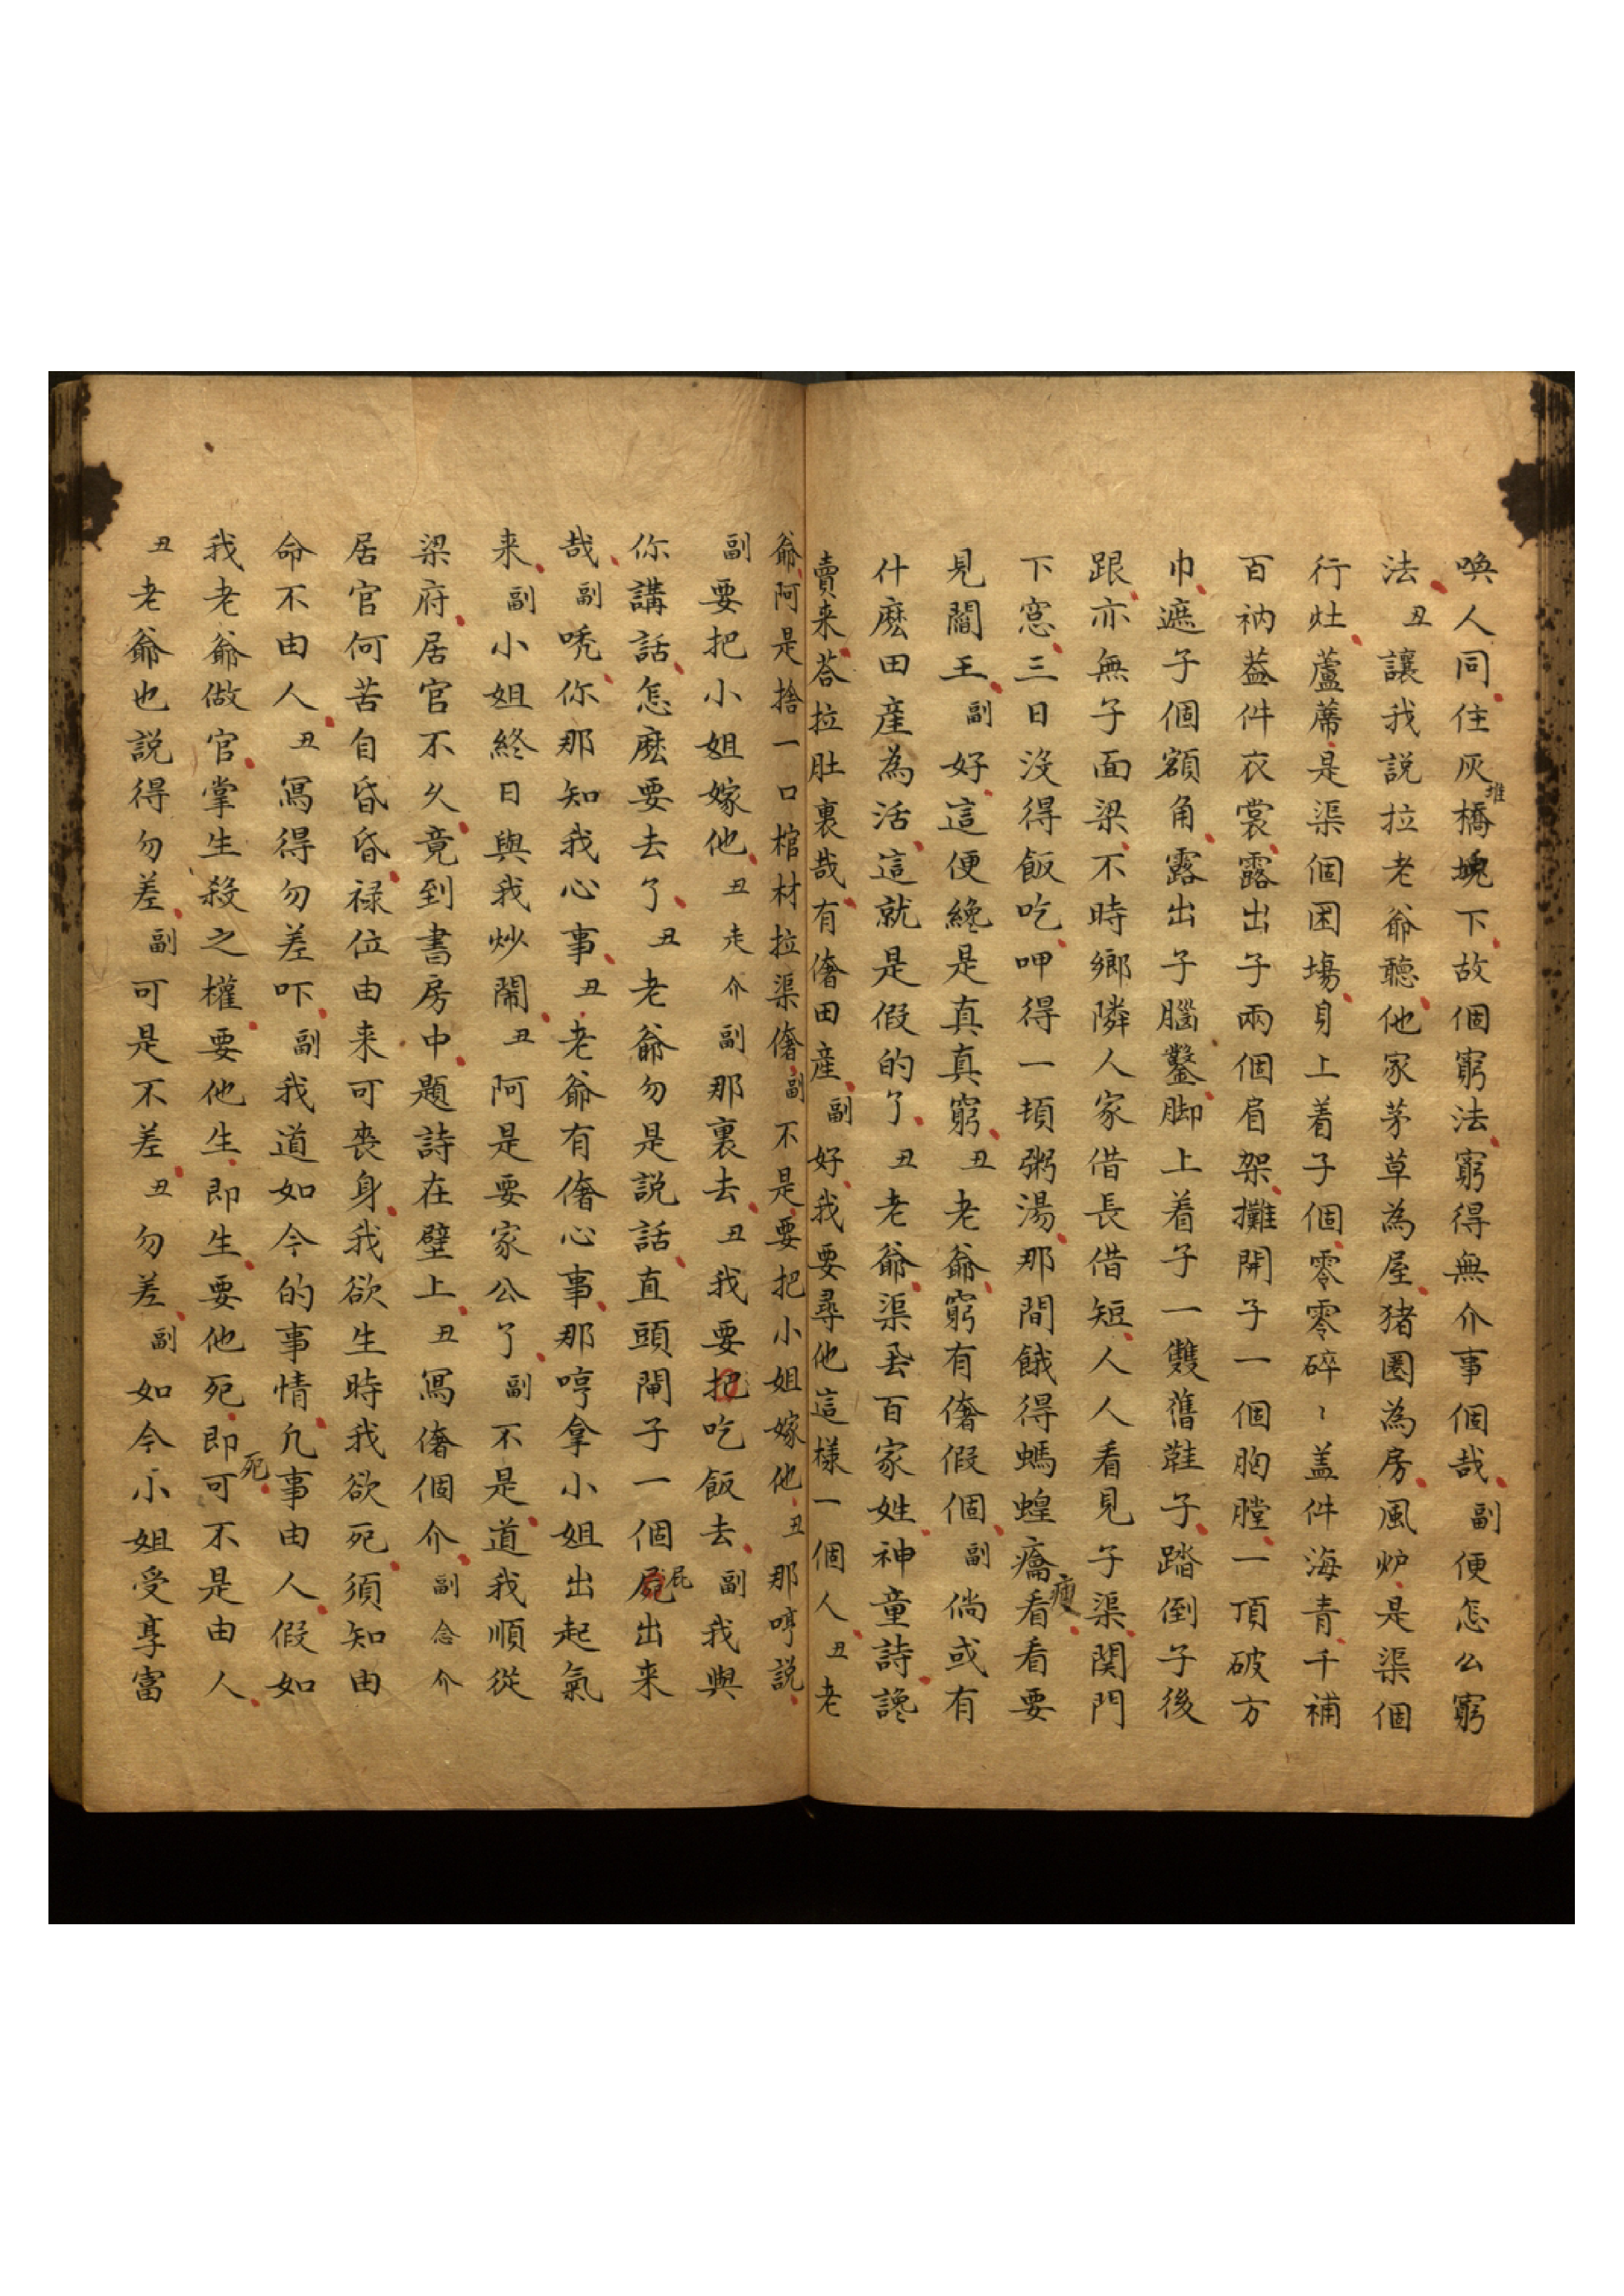 喚人同住灰堆橋塊下故個窮法窮得無介事個哉副便怎公窮
法丑讓我説拉老爺聽他家茅草為屋猪圈為房風炉是渠個
行灶蘆蓆是渠個困塲身上着子個零零碎〻盖件海青千補
百衲葢件衣裳露出子兩個肩架攤開子一個胸膛一頂破方
巾遮子個額角露出子腦鑿脚上着子一雙舊鞋子踏倒子後
跟亦無子面梁不時鄉隣人家借長借短人人看見子渠関門
下窓三日沒得飯吃呷得一頓粥湯那間餓得螞蝗瘦看看要
見閻王副好這便纔是真真窮丑老爺窮有㑋假個副倘或有
什麽田産為活這就是假的了丑老爺渠丟百家姓神童詩讒
賣来荅拉肚裏哉有㑋田産副好我要尋他這樣一個人丑老
爺阿是捨一口棺材拉渠㑋副不是要把小姐嫁他丑那哼説
副要把小姐嫁他丑走介副那裏去丑我要吃飯去副我與
你講話怎麽要去了丑老爺勿是説話直頭閘子一個屁出来
哉副唗你那知我心事丑老爺有㑋心事那哼拿小姐出起氣
来副小姐終日與我炒鬧丑阿是要家公了副不是道我順從
梁府居官不久竟到書房中題詩在壁上丑冩㑋個介副念介
居官何苦自昏昏禄位由来可喪身我欲生時我欲死須知由
命不由人丑冩得勿差吓副我道如今的事情凢事由人假如
我老爺做官掌生殺之權要他生即生要他死即死可不是由人
丑老爺也説得勿差副可是不差丑勿差副如今小姐受享富